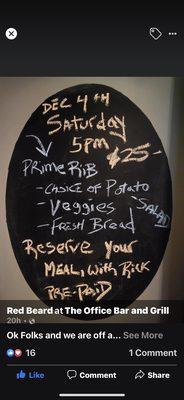 DEC 4TH
Saturday
5PM
$25-
Prime Rib
- CHOICE OF Potato
- Veggies
- FRESH Bread
SALAD
Reserve Your
MEAL, WITH RICK
PRE-PAID
Red Beard at The Office Bar and Grill
20h ·
Ok Folks and we are off a... See More
16
1 Comment
Like
Comment
Share